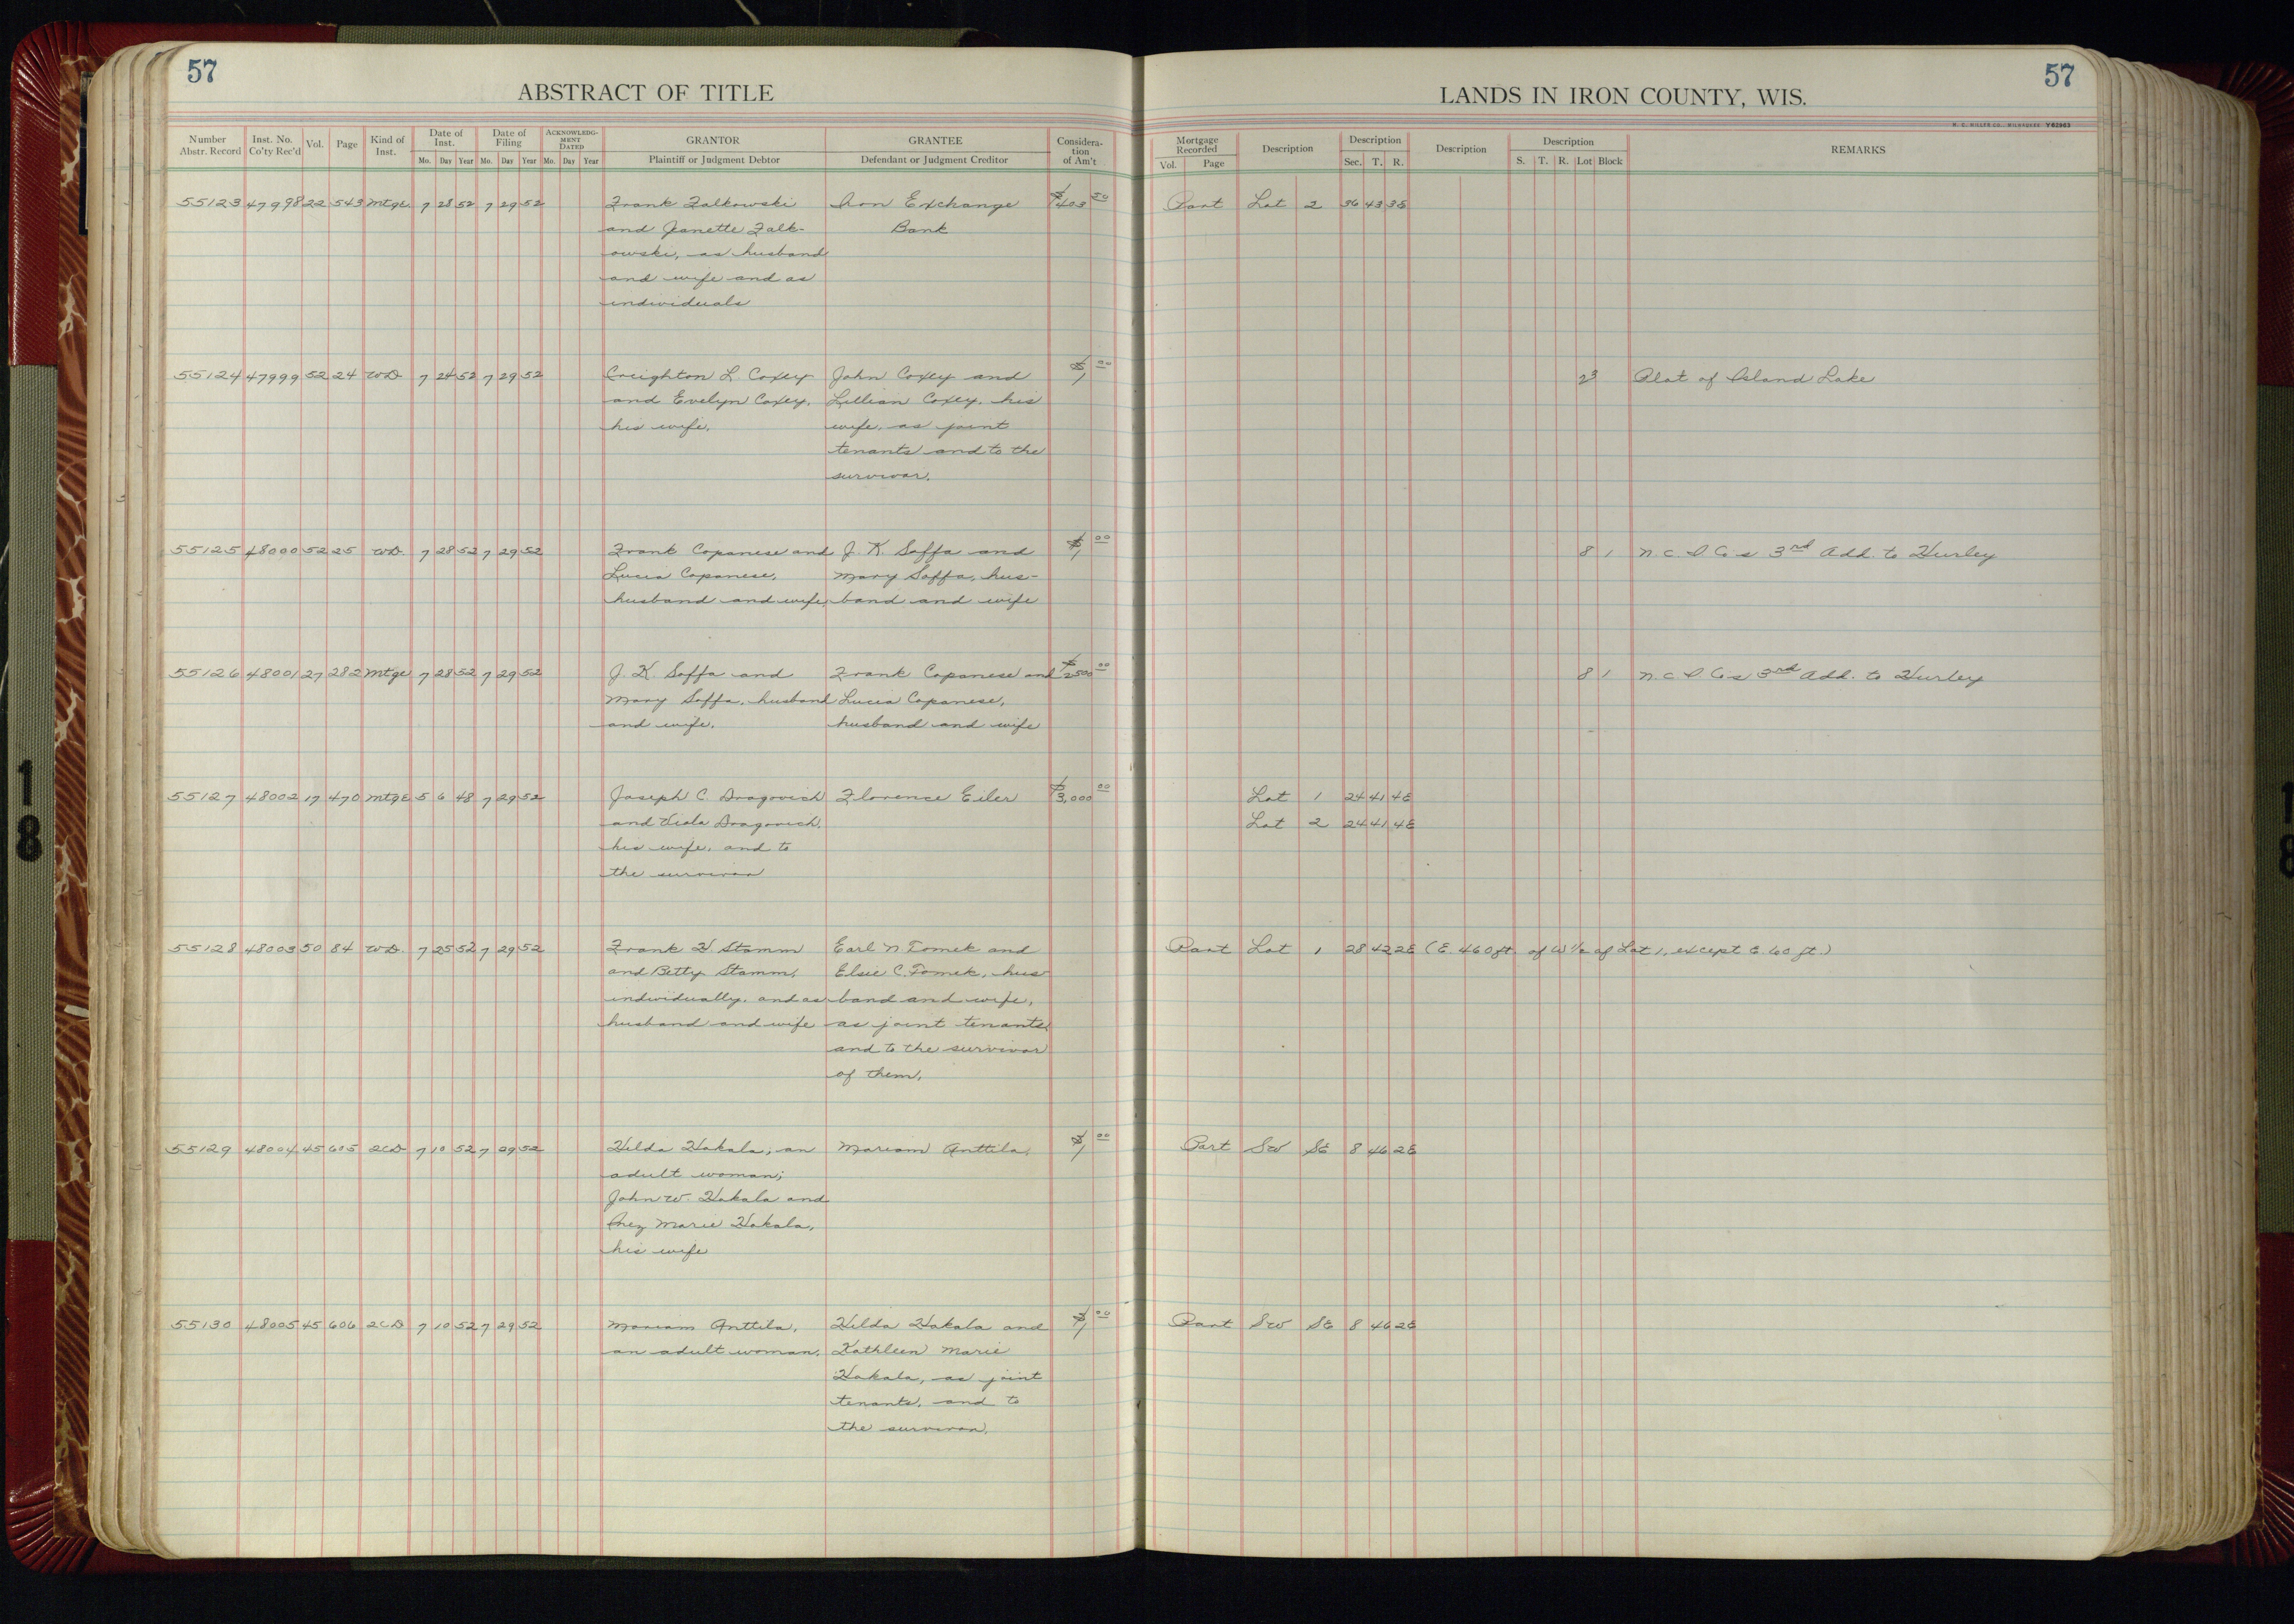 57
ABSTRACT OF TITLE
Number Abstr. Record
Inst. No. Co'ty Rec'd
Vol.
Page
Kind of Inst.
Date of Inst.
Mo. Day Year
Date of Filing
Mo. Day Year
ACKNOWLEDG-MENT DATED
Mo. Day Year
GRANTOR
Plaintiff or Judgment Debtor
GRANTEE
Defendant or Judgment Creditor
Considera-tion of Am't
LANDS IN IRON COUNTY, WIS.
57
H. C. MILLER CO., MILWAUKEE Y82963
Mortgage Recorded
Vol. Page
Description
Description
Sec. T. R.
Description
Description
S. T. R. Lot Block
REMARKS
55123 47998 22 543 Mtge 7 28 52 7 29 52 Frank Falkowski Iron Exchange $403 50 Part Lot 2 36 43 3E
and Jeanette Falk- Bank
owski, as husband
and wife and as
individuals
55124 47999 52 24 WD 7 24 52 7 29 52 Creighton L. Coxey John Coxey and $1 00 23 Plat of Island Lake
and Evelyn Coxey, Lillian Coxey, his
his wife, wife, as joint
tenants and to the
survivor.
55125 48000 52 25 WD 7 28 52 7 29 52 Frank Copanese and J. K. Saffa and $1 00 8 1 N. C. I Co's 3rd Add. to Hurley
Lucia Copanese, Mary Saffa, hus-
husband and wife, band and wife
55126 48001 27 282 Mtge 7 28 52 7 29 52 J. K. Saffa and Frank Copanese and $2500 00 8 1 N. C. I Co's 3rd Add. to Hurley
Mary Saffa, husband Lucia Copanese,
and wife. husband and wife
55127 48002 17 470 Mtge 5 6 48 7 29 52 Joseph C. Dragovich Florence Eiler $3,000 00 Lot 1 24 41 4E
and Viola Dragovich, Lot 2 24 41 4E
his wife, and to
the survivor
55128 48003 50 84 WD. 7 25 52 7 29 52 Frank H Stamm Earl N. Tomek and Part Lot 1 28 42 2E (E. 460 ft. of W 1/2 of Lot 1, except E. 60 ft.)
and Betty Stamm, Elsie C. Tomek, hus
individually, and as band and wife,
husband and wife as joint tenants,
and to the survivor
of them.
55129 48004 45 605 2CD 7 10 52 7 29 52 Hilda Hakala, an Mariam Anttila. $1 00 Part SW SE 8 46 2E
adult woman;
John W. Hakala and
Inez Marie Hakala,
his wife
55130 48005 45 606 2CD 7 10 52 7 29 52 Mariam Anttila, Hilda Hakala and $1 00 Part SW SE 8 46 2E
an adult woman, Kathleen Marie
Hakala, as joint
tenants, and to
the survivor.
18
18